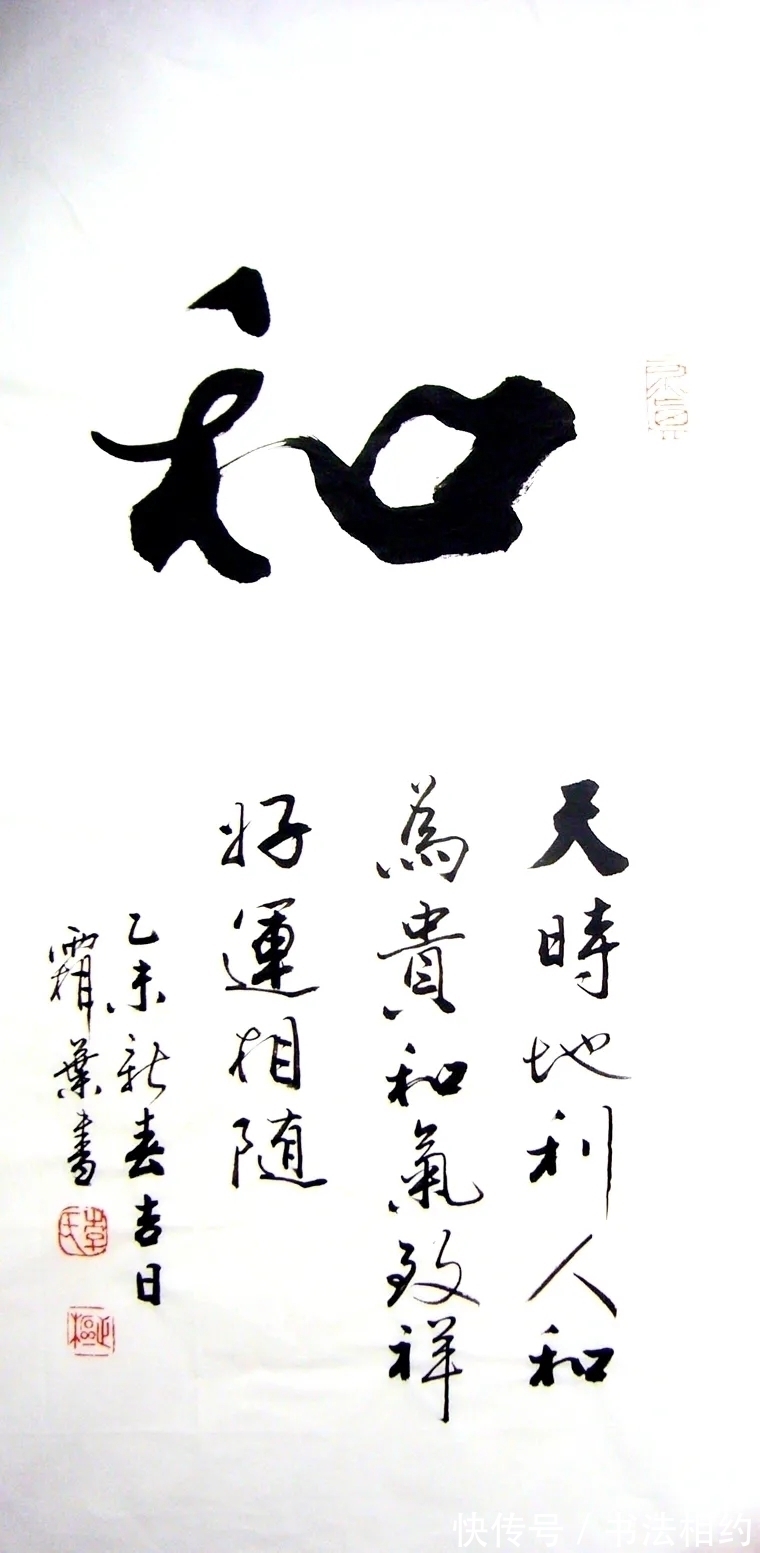 和
天時地利人和
為貴和氣致祥
好運相随
乙未新春吉日
霜葉書
快传号 / 书法相约